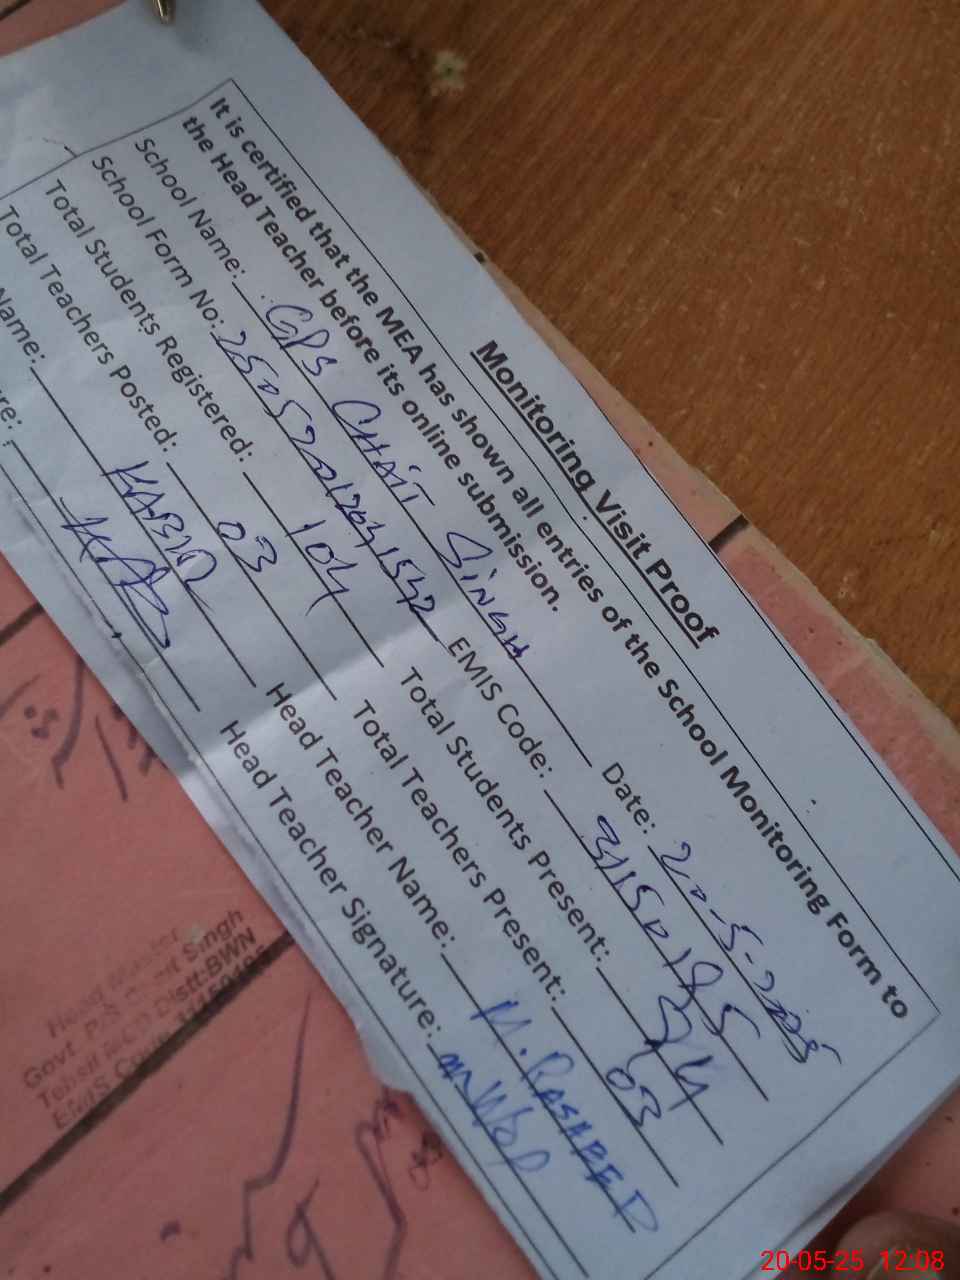 Monitoring Visit Proof
It is certified that the MEA has shown all entries of the School Monitoring Form to
the Head Teacher before its online submission.
School Name: GPS CHAIT SINGH Date: 20-5-2025
School Form No: EMIS Code: 31150195
Total Students Registered: 104 Total Students Present:
Total Teachers Posted: 03 Total Teachers Present: 03
Name: KABIR Head Teacher Name: M. RASHEED
Head Teacher Signature:
Govt. P/S Singh
Distt:BWN
20-05-25 12:08